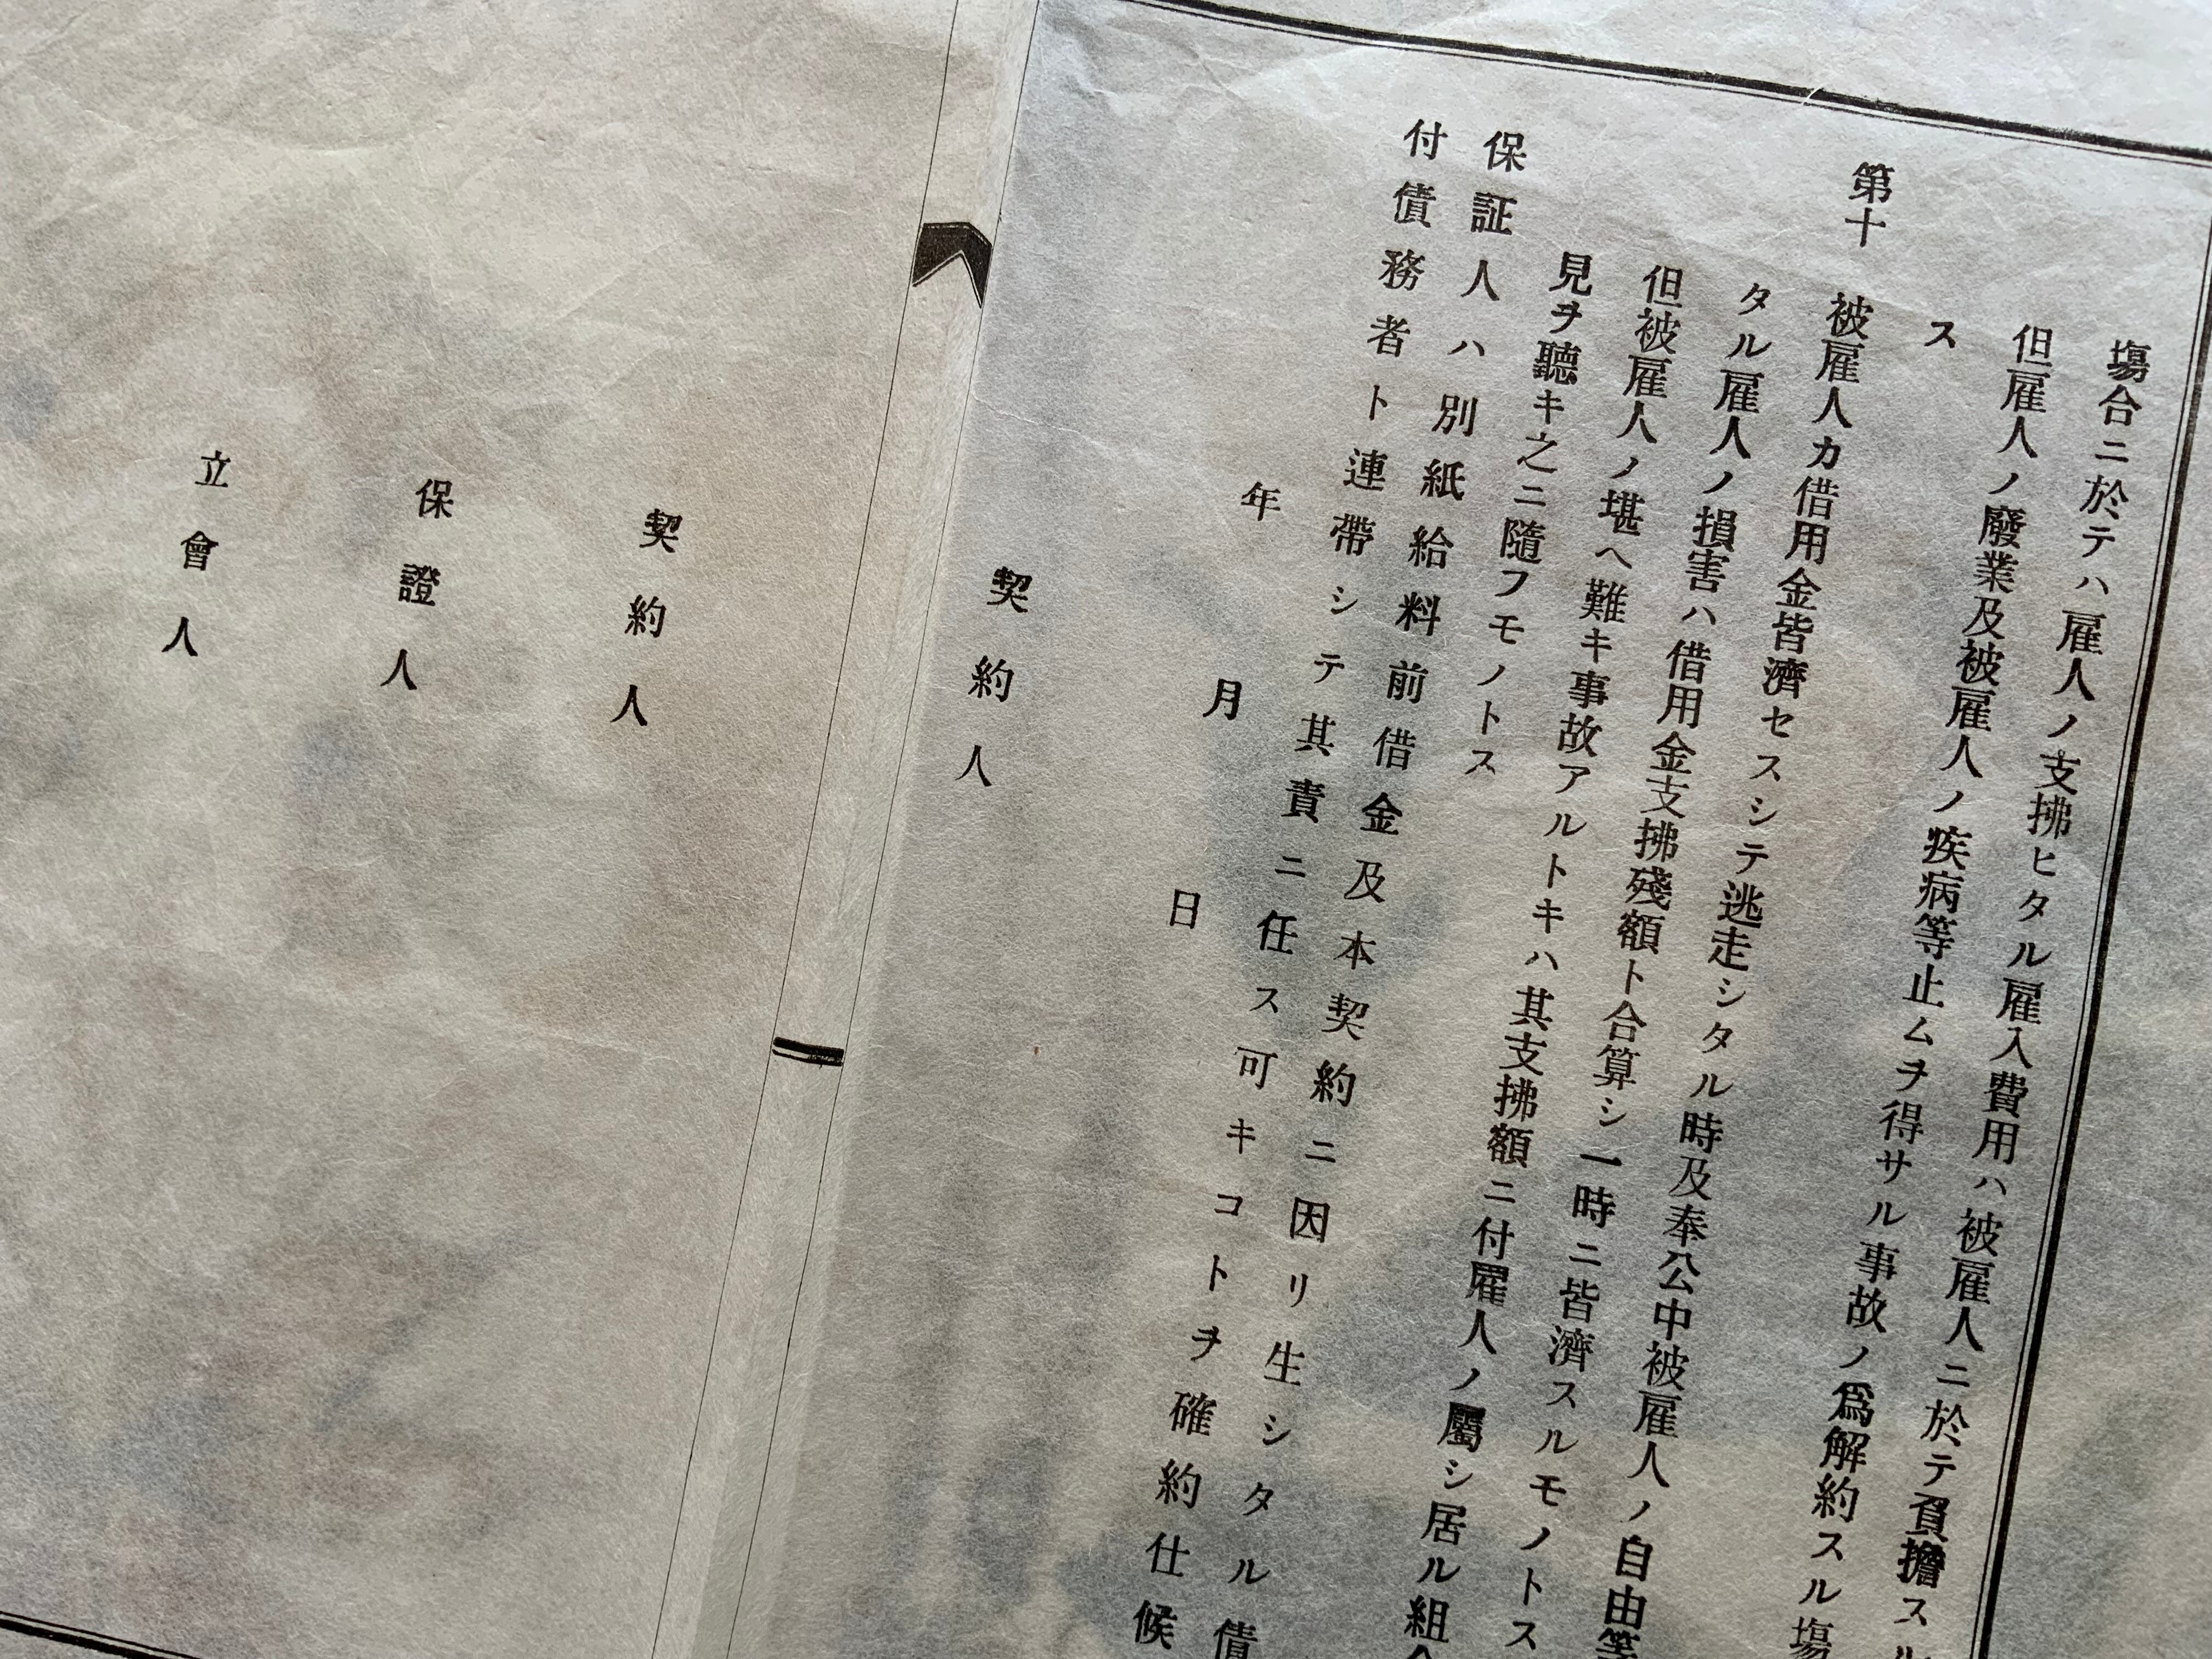 塲合ニ於テハ雇人ノ支拂ヒタル雇入費用ハ被雇人ニ於テ負擔スル
但雇人ノ廢業及被雇人ノ疾病等止ムヲ得サル事故ノ爲解約スル塲
ス
第十 被雇人カ借用金皆濟セスシテ逃走シタル時及奉公中被雇人ノ自由等
タル雇人ノ損害ハ借用金支拂殘額ト合算シ一時ニ皆濟スルモノトス
但被雇人ノ堪ヘ難キ事故アルトキハ其支拂額ニ付雇人ノ屬シ居ル組合
見ヲ聽キ之ニ隨フモノトス
保証人ハ別紙給料前借金及本契約ニ因リ生シタル債
付債務者ト連帶シテ其責ニ任ス可キコトヲ確約仕候
年 月 日
契約人
契約人
保證人
立會人